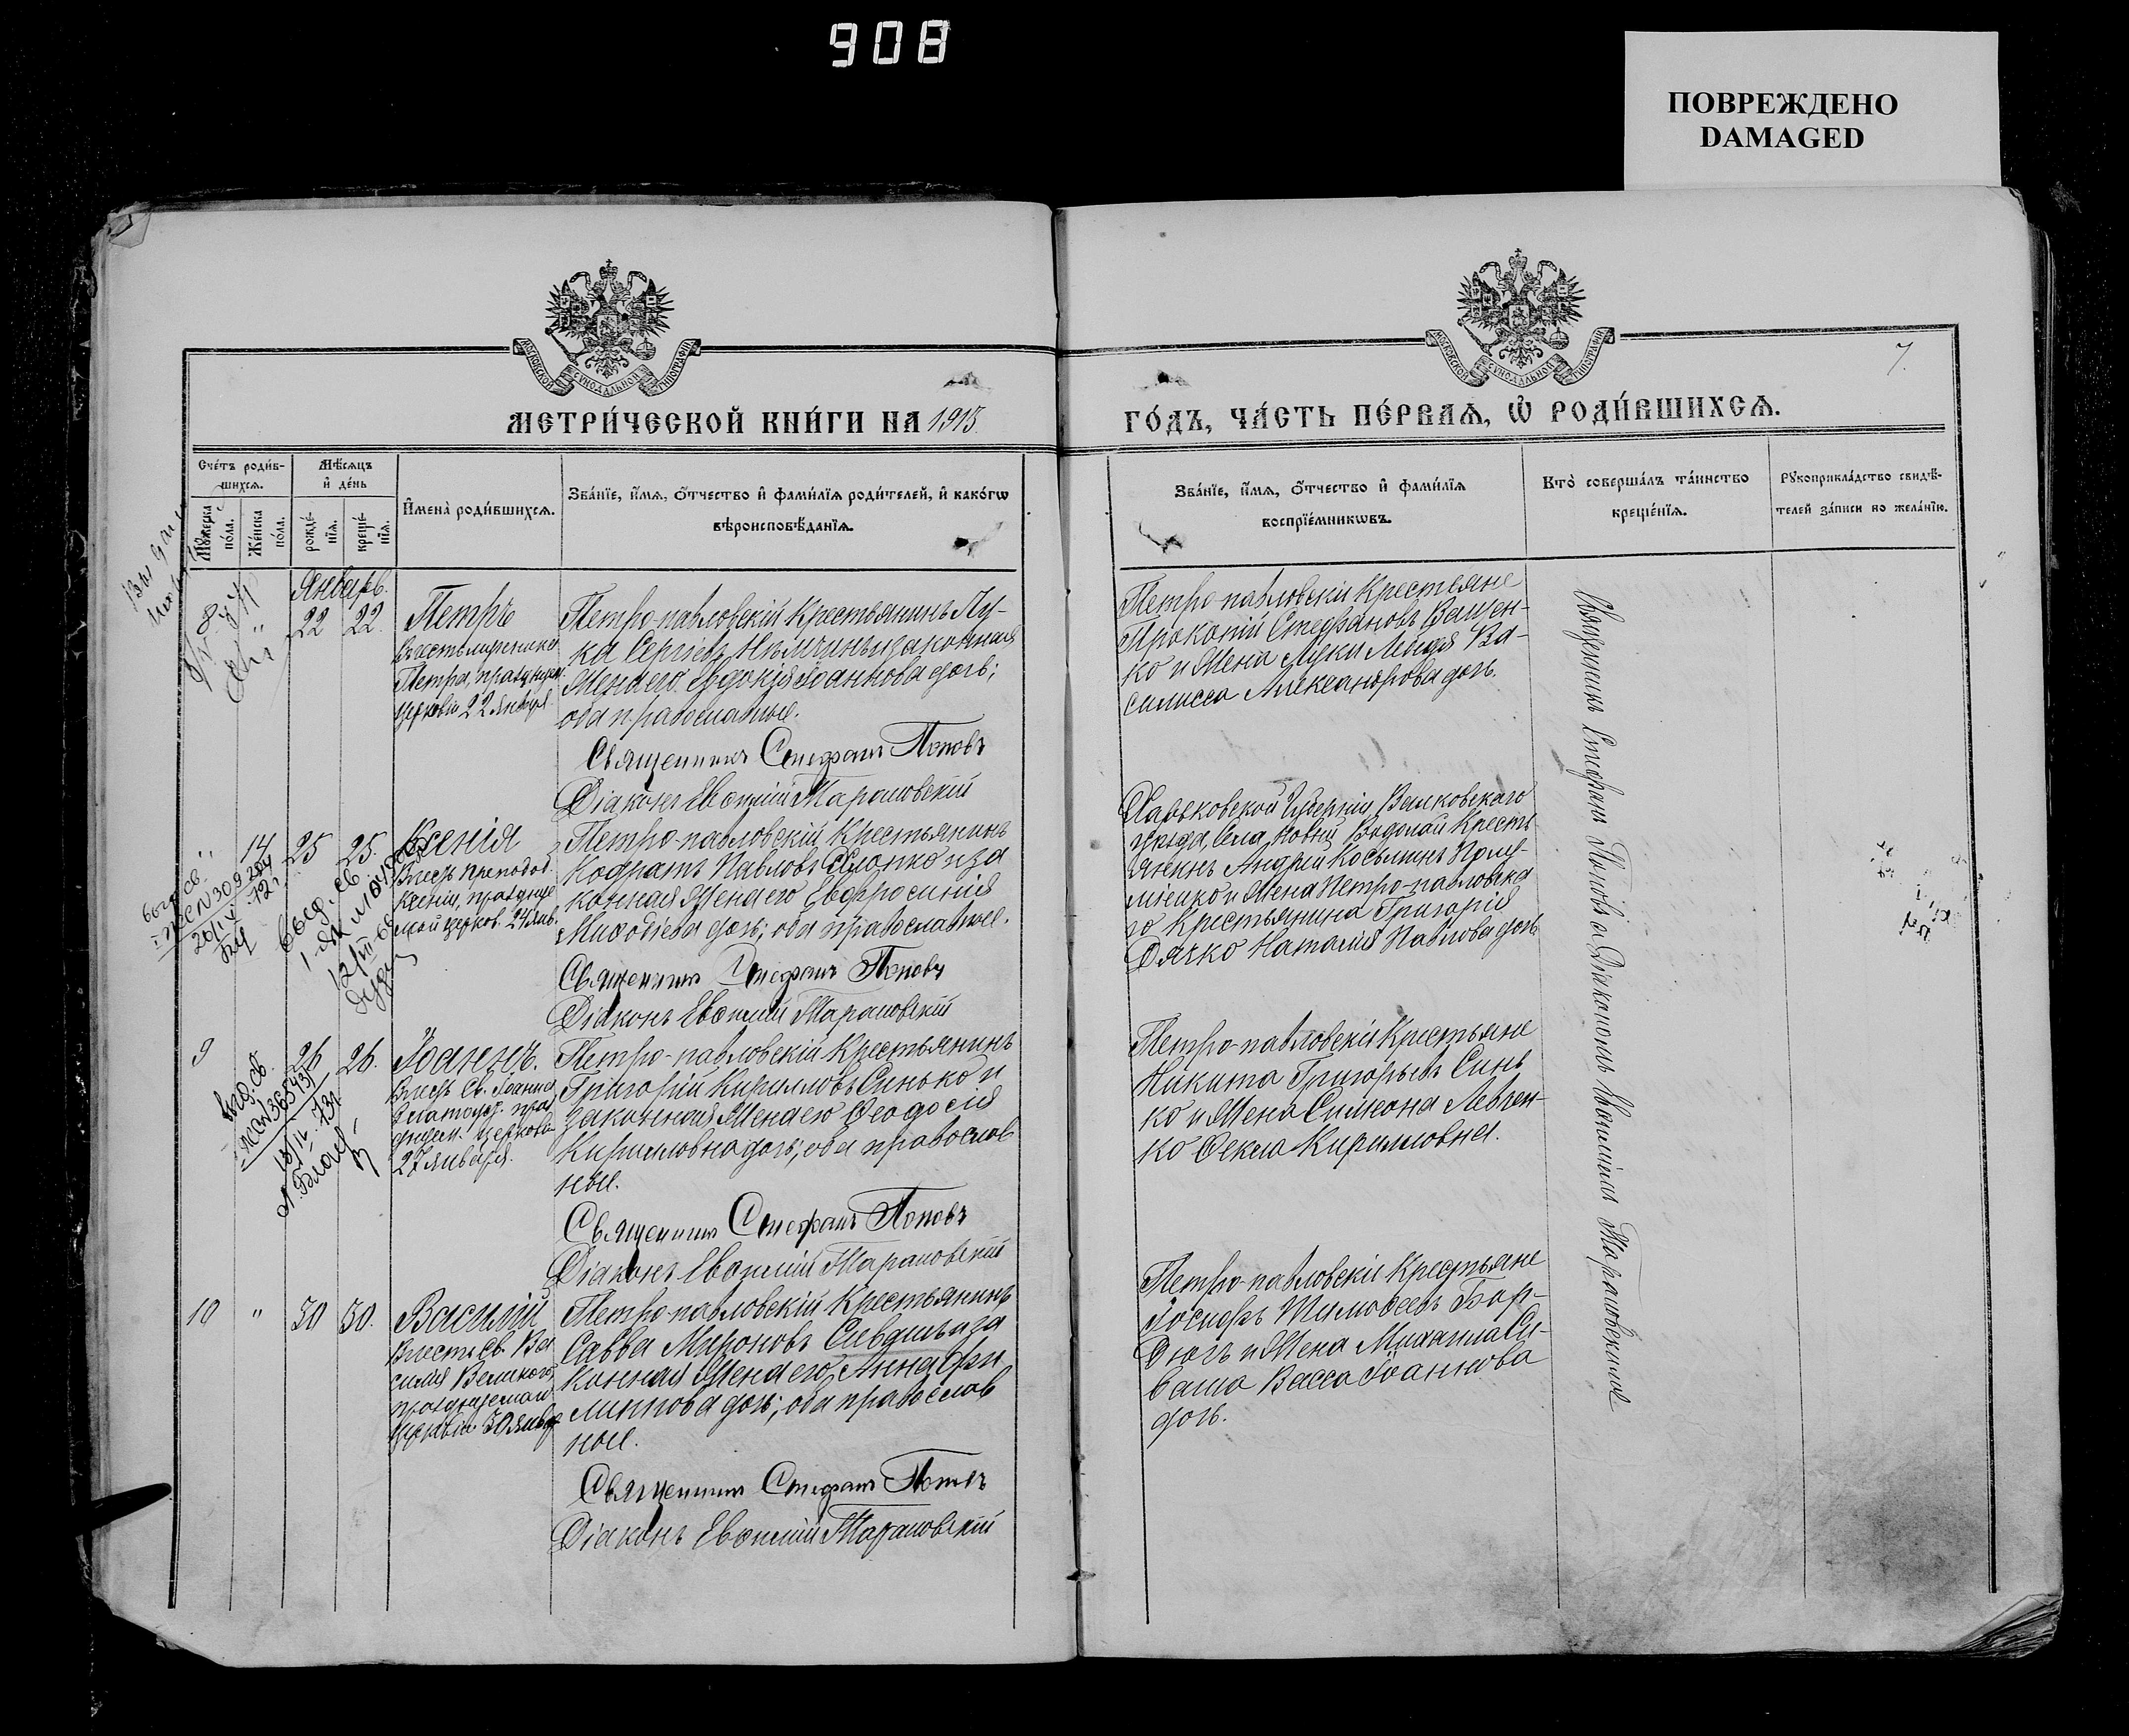 908
ПОВРЕЖДЕНО
DAMAGED
МОСКОВСКОЙ СѴНОДАЛЬНОЙ ТИПОГРАФІИ
МОСКОВСКОЙ СѴНОДАЛЬНОЙ ТИПОГРАФІИ
7.
МЕТРИ́ЧЕСКОЙ КНИ́ГИ НА 1915
ГО́ДЪ, ЧА́СТЬ ПЕ́РВАѦ, Ѡ҆ РОДИ́ВШИХСѦ.
Сче́тъ роди́в-
шихсѧ.
Мꙋ́жеска
по́ла.
Же́нска
по́ла.
Мѣ́сѧцъ
и҆ де́нь
рожде́-
нїѧ.
креще́-
нїѧ.
И҆мена̀ роди́вшихсѧ.
Зва́нїе, и҆́мѧ, ѻ҆́тчество и҆ фамѝлїѧ роди́телей, и҆ како́гѡ
вѣроисповѣ́данїѧ.
Зва́нїе, и҆́мѧ, ѻ҆́тчество и҆ фамѝлїѧ
воспрїе́мникѡвъ.
Кто̀ соверша́лъ та́инство
креще́нїѧ.
Рꙋкоприкла́дство свидѣ́-
телей за́писи по жела́нїю.
Январь.
8 " 22 22.
Петръ
Петра, празднуем.
церковію 22 Января.
Петро-павловскій Крестьянинъ Лу-
ка Сергіевъ законная
Жена его Евдокія Іоаннова дочь;
оба православные.
Священникъ Стефанъ Поповъ
Діаконъ Евѳимій Тарановскій
Петро-павловскіи Крестьяне
Прокопій Стефановъ Ващен-
ко и Жена Луки Ва-
силисса Александрова дочь.
" 14 25 25.
Ксенія
В честь преподоб.
Ксеніи, празднуе
мой церков. 24 янв.
Петро-павловскій Крестьянинъ
Кодратъ Павловъ и за
конная Жена его Евфросинія
Миѳодіева дочь; оба православные.
Священникъ Стефанъ Поповъ
Діаконъ Евѳимій Тарановскій
Харьковской Губерніи, Валковскаго
уѣзда, Села Новый Водолаги Кресть
янинъ Андрей Косьминъ
и Жена Петро-павловска
го Крестьянина Григорія
Дячко Наталія Павлова дочь
9 26 26.
Іоаннъ.
В честь Св. Іоанна
Златоуст. праз
днуем. церковію
27 Января.
Петро-павловскій Крестьянинъ
Григорій Кирилловъ Синько и
законная Жена его Ѳеодосія
Кирилловна дочь; оба православ
ные.
Священникъ Стефанъ Поповъ
Діаконъ Евѳимій Тарановскій
Петро-павловскіе Крестьяне
Никита Григорьевъ Синь
ко и Жена Симеона Левчен-
ко Ѳекла Кирилловна.
10 " 30 30.
Василій
В честь Св. Ва
силія Великого,
празднуемаго
церковію 30 янвр
Петро-павловскій Крестьянинъ
Савва Мироновъ и за
конная Жена его Анна Фи
липпова дочь; оба православ
ные.
Священникъ Стефанъ Поповъ
Діаконъ Евѳимій Тарановскій
Петро-павловскіе Крестьяне
Іосифъ Тимоѳеевъ Бор-
дюгъ и Жена Михаила Си-
ваша Васса Іоаннова
дочь.
Священникъ Стефанъ Поповъ съ Діакономъ Евѳиміемъ Тарановскимъ